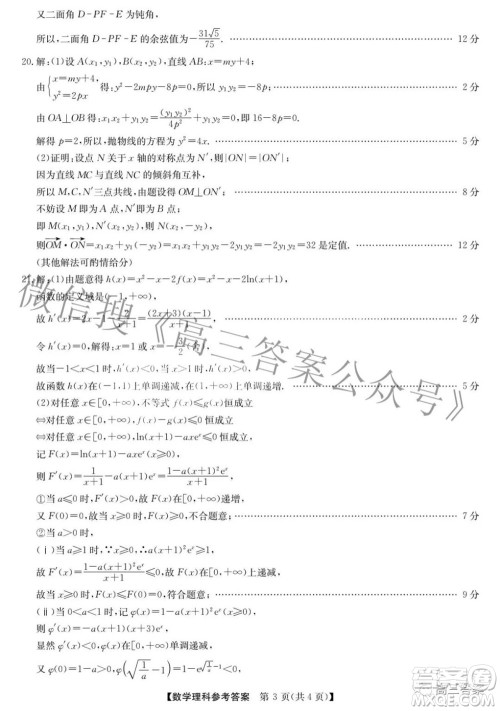 又二面角 D-PF-E 为钝角,
所以,二面角 D-PF-E 的余弦值为-31√5/75. 12 分
20.解:(1)设 A(x₁,y₁),B(x₂,y₂),直线 AB:x=my+4,
由{x=my+4, y²=2px 得:y²-2mpy-8p=0,则 y₁y₂=-8p, 2 分
由 OA⊥OB 得:x₁x₂+y₁y₂=(y₁y₂)²/4p²+y₁y₂=0,即 16-8p=0.
解得 p=2,所以,抛物线的方程为 y²=4x. 5 分
(2)证明:设点 N 关于 x 轴的对称点为 N′,则|ON|=|ON′|.
因为直线 MC 与直线 NC 的倾斜角互补,
所以 M,C,N′三点共线,由题设得 OM⊥ON′. 8 分
不妨设 M 即为 A,N′即为 B,
即 M(x₁,y₁),N′(x₂,y₂),N(x₂,-y₂),
则OM·ON=x₁x₂+y₁(-y₂)=x₁x₂+y₁y₂-2y₁y₂=-2y₁y₂=32 是定值. 12 分
(其他解法可酌情给分)
21.解:(1)由题意得 h(x)=x²-x-2f(x)=x²-x-2ln(x+1),
函数的定义域是(-1,+∞),
故 h′(x)=2x-1-2/(x+1)=(2x+3)(x-1)/(x+1), 2 分
令 h′(x)=0,解得:x=1 或 x=-3/2(舍去),
故当-1<x<1时,h′(x)<0,当 x>1 时,h′(x)>0.
故函数 h(x)在(-1,1)上单调递减,在(1,+∞)上单调递增. 5 分
(2)对任意 x∈[0,+∞),不等式 f(x)≤g(x)恒成立
⇔对任意 x∈[0,+∞),f(x)-g(x)≤0 恒成立
⇔对任意 x∈[0,+∞),ln(x+1)-axeˣ≤0 恒成立,
记 F(x)=ln(x+1)-axeˣ(x≥0),
则 F′(x)=1/(x+1)-a(x+1)eˣ=(1-a(x+1)²eˣ)/(x+1),
①当 a≤0 时,F′(x)>0,故 F(x)在[0,+∞)递增,
又 F(0)=0,故当 x≥0 时,F(x)≥F(0)=0,不合题意; 7 分
②当 a>0 时,
(ⅰ)当 a≥1 时,∵x≥0,∴a(x+1)²eˣ≥1,
故 F′(x)=(1-a(x+1)²eˣ)/(x+1)≤0,故 F(x)在[0,+∞)上递减,
故当 x≥0 时,F(x)≤F(0)=0,符合题意; 9 分
(ⅱ)当 0<a<1 时,记 φ(x)=1-a(x+1)²eˣ(x≥0),
则 φ′(x)=-a(x+1)(x+3)eˣ<0,φ(x)在[0,+∞)上递减,
【数学理科参考答案 第 3 页(共 4 页)】
微信搜《高三答案公众号》